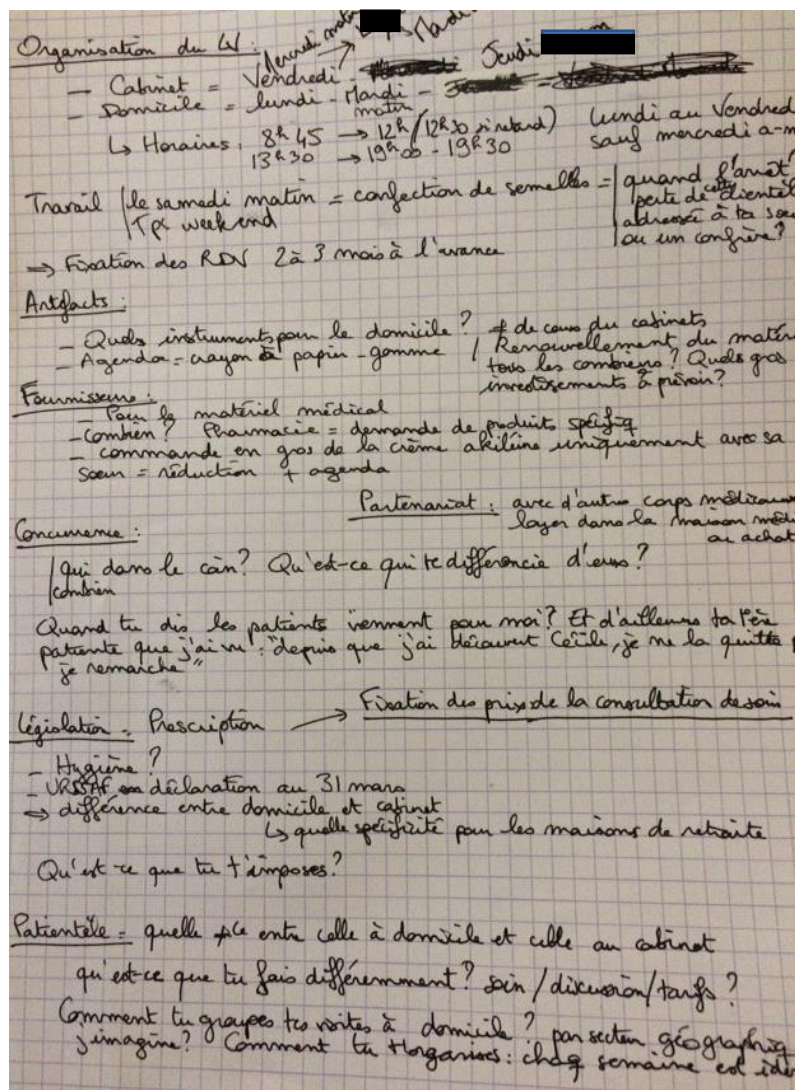 Mercredi matin Mardi
Organisation du W :
- Cabinet = Vendredi - Jeudi
- Domicile = lundi - Mardi matin -
↳ Horaires : 8h45 → 12h / (12h30 si retard) lundi au Vendred
13h30 → 19h00 - 19h30 sauf mercredi a-m
Travail | le samedi matin = confection de semelles = | quand j'arrête
Tps week-end perte de cette clientèl
adressée à ta soeu
ou un confrère ?
⇒ Fixation des RDV 2 à 3 mois à l'avance
Artefacts :
- Quels instruments pour le domicile ? ≠ de ceux du cabinets
- Agenda = crayon à papier - gomme / Renouvellement du matér
tous les combiens ? Quels gros
investissements à prévoir ?
Fournisseurs :
- Pour le matériel médical
- combien ? Pharmacie = demande de produits spécifiq
- commande en gros de la crème akiléine uniquement avec sa
soeur = réduction + agenda
Partenariat : avec d'autres corps médicaux
loyer dans la maison médi
ou achat
Concurrence :
| qui dans le coin ? Qu'est-ce qui te différencie d'eux ?
combien
Quand tu dis les patients viennent pour moi ? Et d'ailleurs ta 1ère
patiente que j'ai vu : "depuis que j'ai découvert Cécile, je ne la quitte p
je remarche"
Législation = Prescription → Fixation des prix de la consultation de soin
- Hygiène ?
- URSSAF déclaration au 31 mars
⇒ différence entre domicile et cabinet
↳ quelle spécificité pour les maisons de retraite
Qu'est-ce que tu t'imposes ?
Patientèle = quelle ≠ce entre celle à domicile et celle au cabinet
qu'est-ce que tu fais différemment ? soin / discussion / tarifs ?
Comment tu groupes tes visites à domicile ? par secteur géographiq
j'imagine ? Comment tu t'organises : chaq semaine est iden